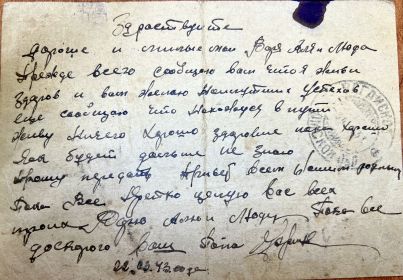 Здраствуйте
Дорогие и милые мои Варя Аля и Люда
Прежде всего сообщаю вам что я жив и
здоров и вам желаю наилутших успехов
еще сообщаю что нахожусь в пути
живу ничего хорошо здоровие пока хорошо
как будет дальше не знаю
прошу передать привет всем нашим родным
Пока Все Крепко целую вас всех
троих Адю Алю и Люду Пока все
досвидания ваш Папа
22.03.43 года